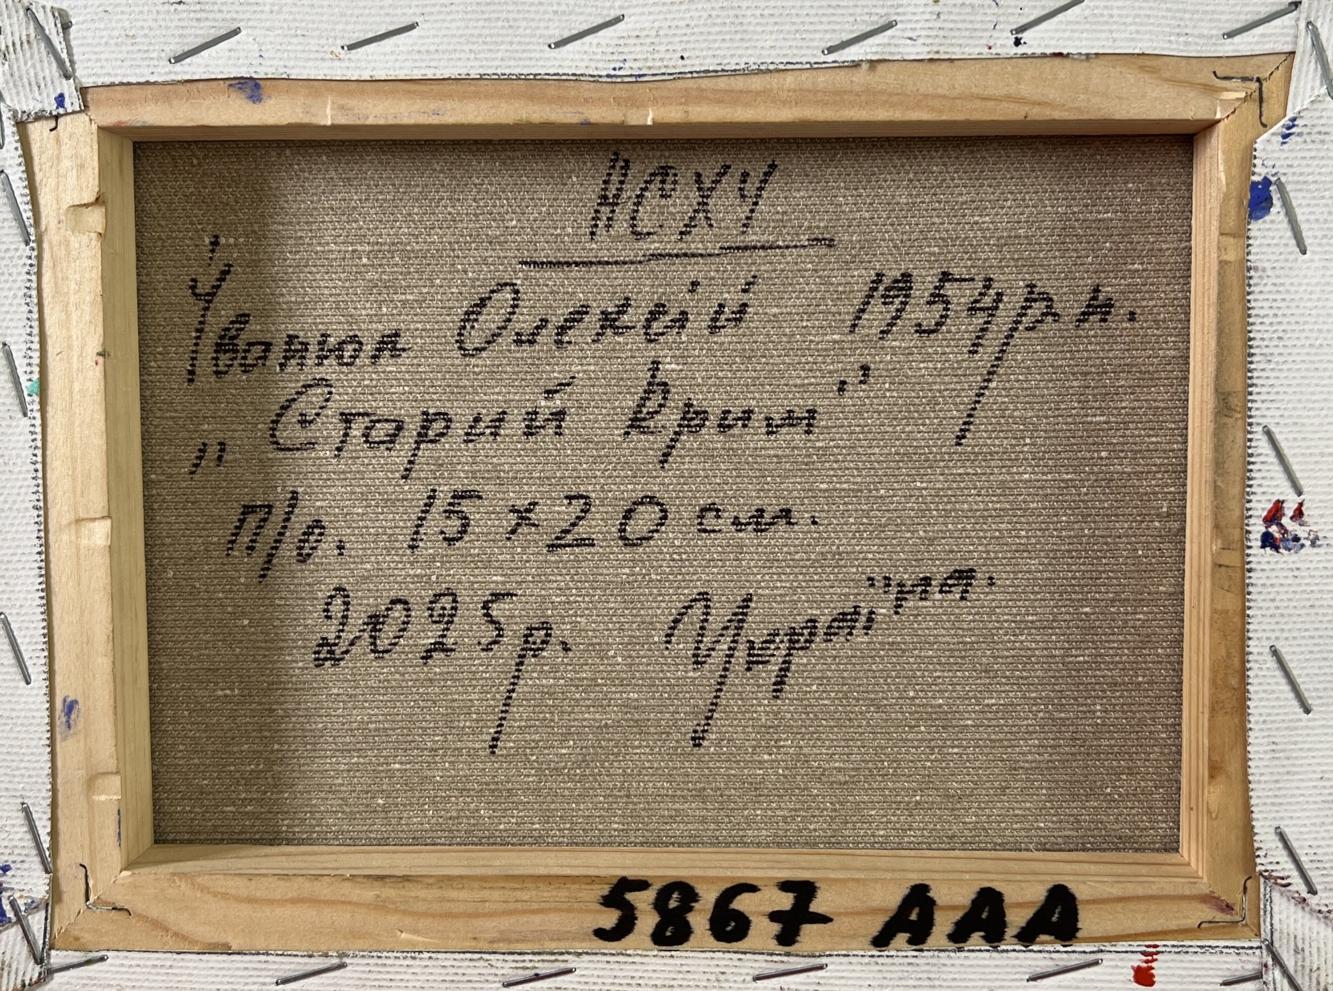 НСХУ
Іванюк Олексій 1954р.н.
„Старий Крим"
п/о. 15×20 см.
2025р. Україна.
5867 AAA